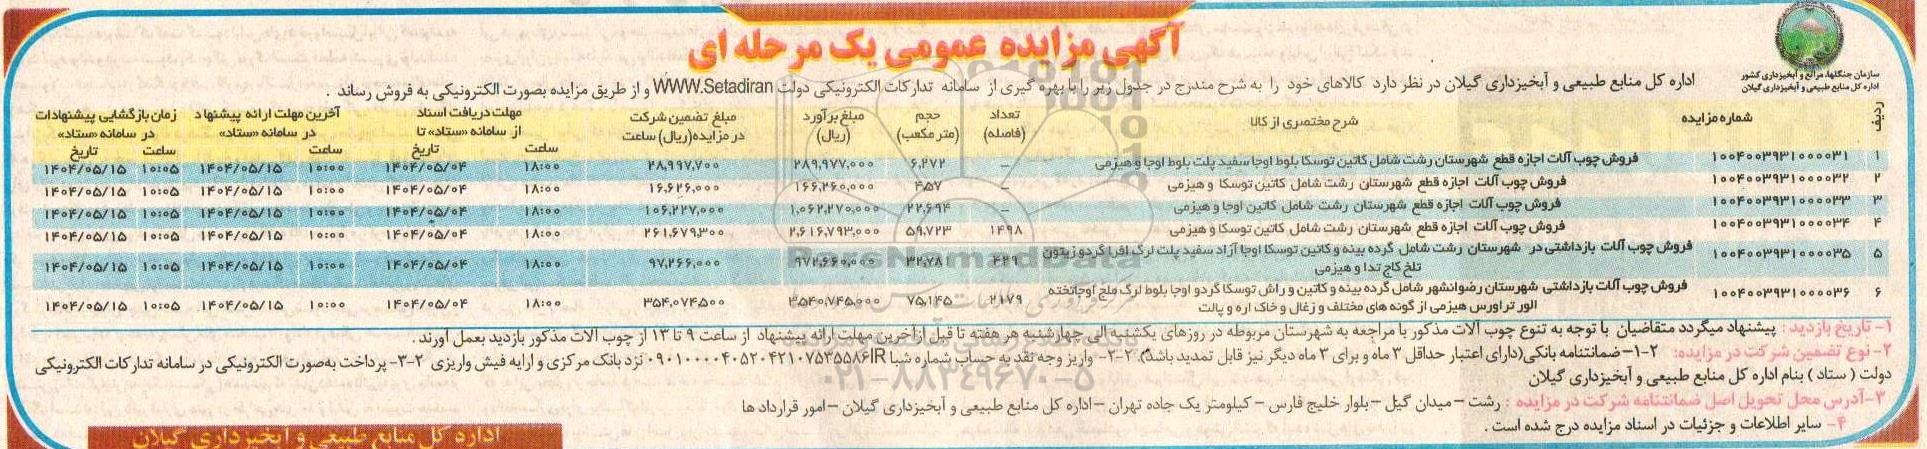 آگهی مزایده عمومی یک مرحله ای
سازمان جنگلها، مراتع و آبخیزداری کشور
اداره کل منابع طبیعی و آبخیزداری گیلان
اداره کل منابع طبیعی و آبخیزداری گیلان در نظر دارد کالاهای خود را به شرح مندرج در جدول زیر را با بهره گیری از سامانه تدارکات الکترونیکی دولت WWW.Setadiran و از طریق مزایده بصورت الکترونیکی به فروش رساند .
ردیف شماره مزایده شرح مختصری از کالا تعداد (فاصله) حجم (متر مکعب) مبلغ برآورد (ریال) مبلغ تضمین شرکت در مزایده(ریال) ساعت مهلت دریافت اسناد از سامانه «ستاد» تا ساعت تاریخ آخرین مهلت ارائه پیشنهاد در سامانه «ستاد» ساعت تاریخ زمان بازگشایی پیشنهادات در سامانه «ستاد» ساعت تاریخ
۱ ۱۰۰۴۰۰۳۹۳۱۰۰۰۰۳۱ فروش چوب آلات اجازه قطع شهرستان رشت شامل کاتین توسکا بلوط اوجا سفید پلت بلوط اوجا و هیزمی – ۶,۲۷۲ ۲۸۹,۹۷۷,۰۰۰ ۲۸,۹۹۷,۷۰۰ ۱۸:۰۰ ۱۴۰۴/۰۵/۰۴ ۱۰:۰۰ ۱۴۰۴/۰۵/۱۵ ۱۰:۰۵ ۱۴۰۴/۰۵/۱۵
۲ ۱۰۰۴۰۰۳۹۳۱۰۰۰۰۳۲ فروش چوب آلات اجازه قطع شهرستان رشت شامل کاتین توسکا و هیزمی – ۴۵۷ ۱۶۶,۲۶۰,۰۰۰ ۱۶,۶۲۶,۰۰۰ ۱۸:۰۰ ۱۴۰۴/۰۵/۰۴ ۱۰:۰۰ ۱۴۰۴/۰۵/۱۵ ۱۰:۰۵ ۱۴۰۴/۰۵/۱۵
۳ ۱۰۰۴۰۰۳۹۳۱۰۰۰۰۳۳ فروش چوب آلات اجازه قطع شهرستان رشت شامل کاتین اوجا و هیزمی – ۲۲,۶۹۴ ۱,۰۶۲,۲۷۰,۰۰۰ ۱۰۶,۲۲۷,۰۰۰ ۱۸:۰۰ ۱۴۰۴/۰۵/۰۴ ۱۰:۰۰ ۱۴۰۴/۰۵/۱۵ ۱۰:۰۵ ۱۴۰۴/۰۵/۱۵
۴ ۱۰۰۴۰۰۳۹۳۱۰۰۰۰۳۴ فروش چوب آلات اجازه قطع شهرستان رشت شامل کاتین توسکا و هیزمی ۱۴۹۸ ۵۹,۷۲۳ ۲,۶۱۶,۷۹۳,۰۰۰ ۲۶۱,۶۷۹,۳۰۰ ۱۸:۰۰ ۱۴۰۴/۰۵/۰۴ ۱۰:۰۰ ۱۴۰۴/۰۵/۱۵ ۱۰:۰۵ ۱۴۰۴/۰۵/۱۵
۵ ۱۰۰۴۰۰۳۹۳۱۰۰۰۰۳۵ فروش چوب آلات بازداشتی در شهرستان رشت شامل گرده بینه و کاتین توسکا اوجا آزاد سفید پلت لرگ افرا گردو زیتون
تلخ کاج تدا و هیزمی ۴۲۹ ۳۲,۷۸۱ ۹۷۲,۶۶۰,۰۰۰ ۹۷,۲۶۶,۰۰۰ ۱۸:۰۰ ۱۴۰۴/۰۵/۰۴ ۱۰:۰۰ ۱۴۰۴/۰۵/۱۵ ۱۰:۰۵ ۱۴۰۴/۰۵/۱۵
۶ ۱۰۰۴۰۰۳۹۳۱۰۰۰۰۳۶ فروش چوب آلات بازداشتی شهرستان رضوانشهر شامل گرده بینه و کاتین و راش توسکا گردو اوجا بلوط لرگ ملج اوجاتخته
الور تراورس هیزمی از گونه های مختلف و زغال و خاک اره و پالت ۲۱۷۹ ۷۵,۱۴۵ ۳,۵۴۰,۷۴۵,۰۰۰ ۳۵۴,۰۷۴,۵۰۰ ۱۸:۰۰ ۱۴۰۴/۰۵/۰۴ ۱۰:۰۰ ۱۴۰۴/۰۵/۱۵ ۱۰:۰۵ ۱۴۰۴/۰۵/۱۵
۱- تاریخ بازدید : پیشنهاد میگردد متقاضیان با توجه به تنوع چوب آلات مذکور با مراجعه به شهرستان مربوطه در روزهای یکشنبه الی چهارشنبه هر هفته تا قبل از آخرین مهلت ارائه پیشنهاد از ساعت ۹ تا ۱۳ از چوب الات مذکور بازدید بعمل آورند .
۲- نوع تضمین شرکت در مزایده: ۲-۱-ضمانتنامه بانکی(دارای اعتبار حداقل ۳ ماه و برای ۳ ماه دیگر نیز قابل تمدید باشد) ۲-۲- واریز وجه نقد به حساب شماره شبا ۰۹۰۱۰۰۰۰۴۰۵۲۰۴۲۱۰۷۵۳۵۵۸۶IR نزد بانک مرکزی و ارایه فیش واریزی ۲-۳- پرداخت به‌صورت الکترونیکی در سامانه تدارکات الکترونیکی
دولت ( ستاد ) بنام اداره کل منابع طبیعی و آبخیزداری گیلان
۳-آدرس محل تحویل اصل ضمانتنامه شرکت در مزایده : رشت –میدان گیل –بلوار خلیج فارس – کیلومتر یک جاده تهران –اداره کل منابع طبیعی و آبخیزداری گیلان –امور قرارداد ها
۴- سایر اطلاعات و جزئیات در اسناد مزایده درج شده است .
اداره کل منابع طبیعی و آبخیزداری گیلان
ParsNamadData
۰۲۱-۸۸۳۴۹۶۷۰-۵